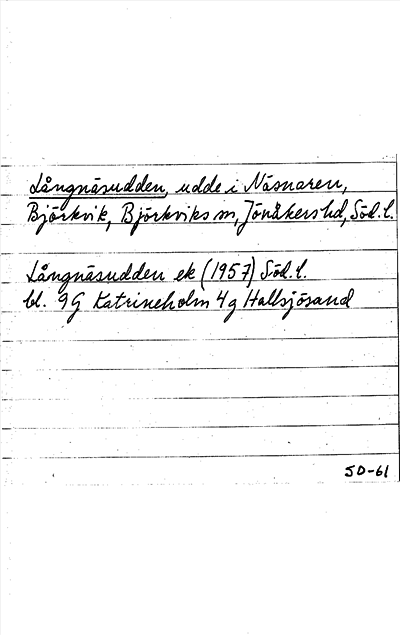 Långnäsudden, udde i Näsnaren,
Björkvik, Björkviks sn, Jönåkers hd, Söd. l.
Långnäsudden ek (1957) Söd. l.
bl. 9G Katrineholm 4g Hallsjösand
SD-61